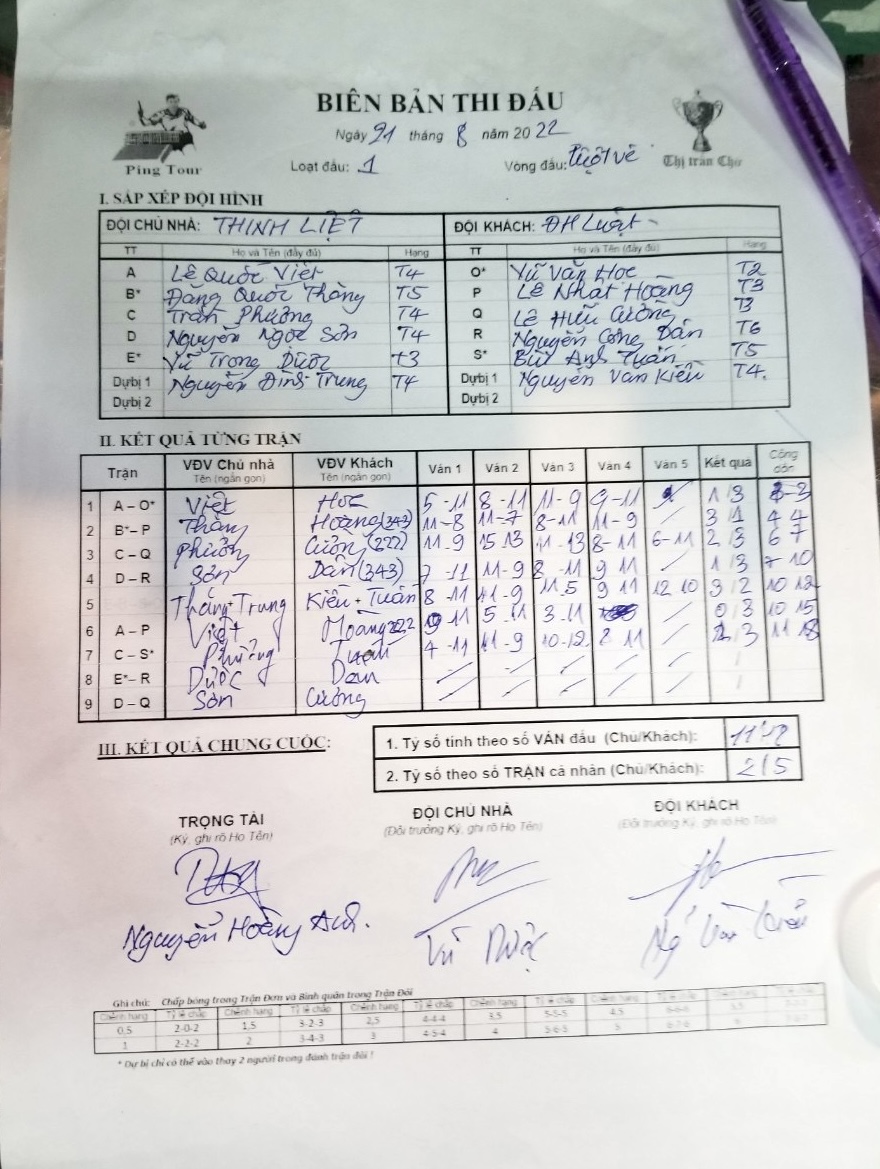 BIÊN BẢN THI ĐẤU
Ngày 21 tháng 8 năm 2022
Ping Tour
Loạt đấu: 1 Vòng đấu: lượt về
Thị trấn Chờ
I. SẮP XẾP ĐỘI HÌNH
ĐỘI CHỦ NHÀ: THINH LIỆT ĐỘI KHÁCH: ĐH Luật
TT Họ và Tên (đầy đủ) Hạng TT Họ và Tên (đầy đủ) Hạng
A Lê Quốc Việt T4 O* Vũ Văn Học T2
B* Đặng Quốc Thắng T5 P Lê Nhật Hoàng T3
C Trần Phương T4 Q Lê Hữu Cường T3
D Nguyễn Ngọc Sơn T4 R Nguyễn Công Dân T6
E* Vũ Trọng Được t3 S* Bùi Anh Tuấn T5
Dự bị 1 Nguyễn Đình Trung T4 Dự bị 1 Nguyễn Văn Kiều T4.
Dự bị 2 Dự bị 2
II. KẾT QUẢ TỪNG TRẬN
Trận VĐV Chủ nhà VĐV Khách Ván 1 Ván 2 Ván 3 Ván 4 Ván 5 Kết quả Cộng dồn
Tên (ngắn gọn) Tên (ngắn gọn)
1 A – O* Việt Học 5 -11 8 -11 11-9 9-11 1/3
2 B*– P Thắng Hoàng (343) 11-8 11-7 8-11 11-9 / 3/1 4 4
3 C – Q Phương Cường (222) 11-9 15 13 11-13 8-11 6-11 2/3 6 7
4 D – R Sơn Dân (343) 7 -11 11-9 8 -11 9 11 / 1/3 7 10
5 Thắng+Trung Kiều + Tuấn 8 -11 11-9 11.5 9 11 12 10 3/2 10 12
6 A – P Việt Hoàng 222 9 11 5 -11 3-11 0/3 10 15
7 C – S* Phương Tuấn 4 -11 11-9 10-12 8 11 / 1/3 11 18
8 E*– R Được Dân / / / / / /
9 D – Q Sơn Cường / / / / / /
III. KẾT QUẢ CHUNG CUỘC:
1. Tỷ số tính theo số VÁN đấu (Chủ/Khách): 11/18
2. Tỷ số theo số TRẬN cá nhân (Chủ/Khách): 2/5
TRỌNG TÀI ĐỘI CHỦ NHÀ ĐỘI KHÁCH
(Ký, ghi rõ Họ Tên) (Đội trưởng Ký, ghi rõ Họ Tên) (Đội trưởng Ký, ghi rõ Họ Tên)
Nguyễn Hoàng Anh. Vũ Được
Ghi chú: Chấp bóng trong Trận Đơn và Bình quân trong Trận Đôi
Chênh hạng Tỷ lệ chấp Chênh hạng Tỷ lệ chấp Chênh hạng Tỷ lệ chấp Chênh hạng Tỷ lệ chấp Chênh hạng Tỷ lệ chấp Chênh hạng Tỷ lệ chấp
0,5 2-0-2 1,5 3-2-3 2,5 4-4-4 3,5 5-5-5 4,5 6-6-6
1 2-2-2 2 3-4-3 3 4-5-4 4 5-6-5 5 6-7-6
* Dự bị chỉ có thể vào thay 2 người trong đánh trận đôi !